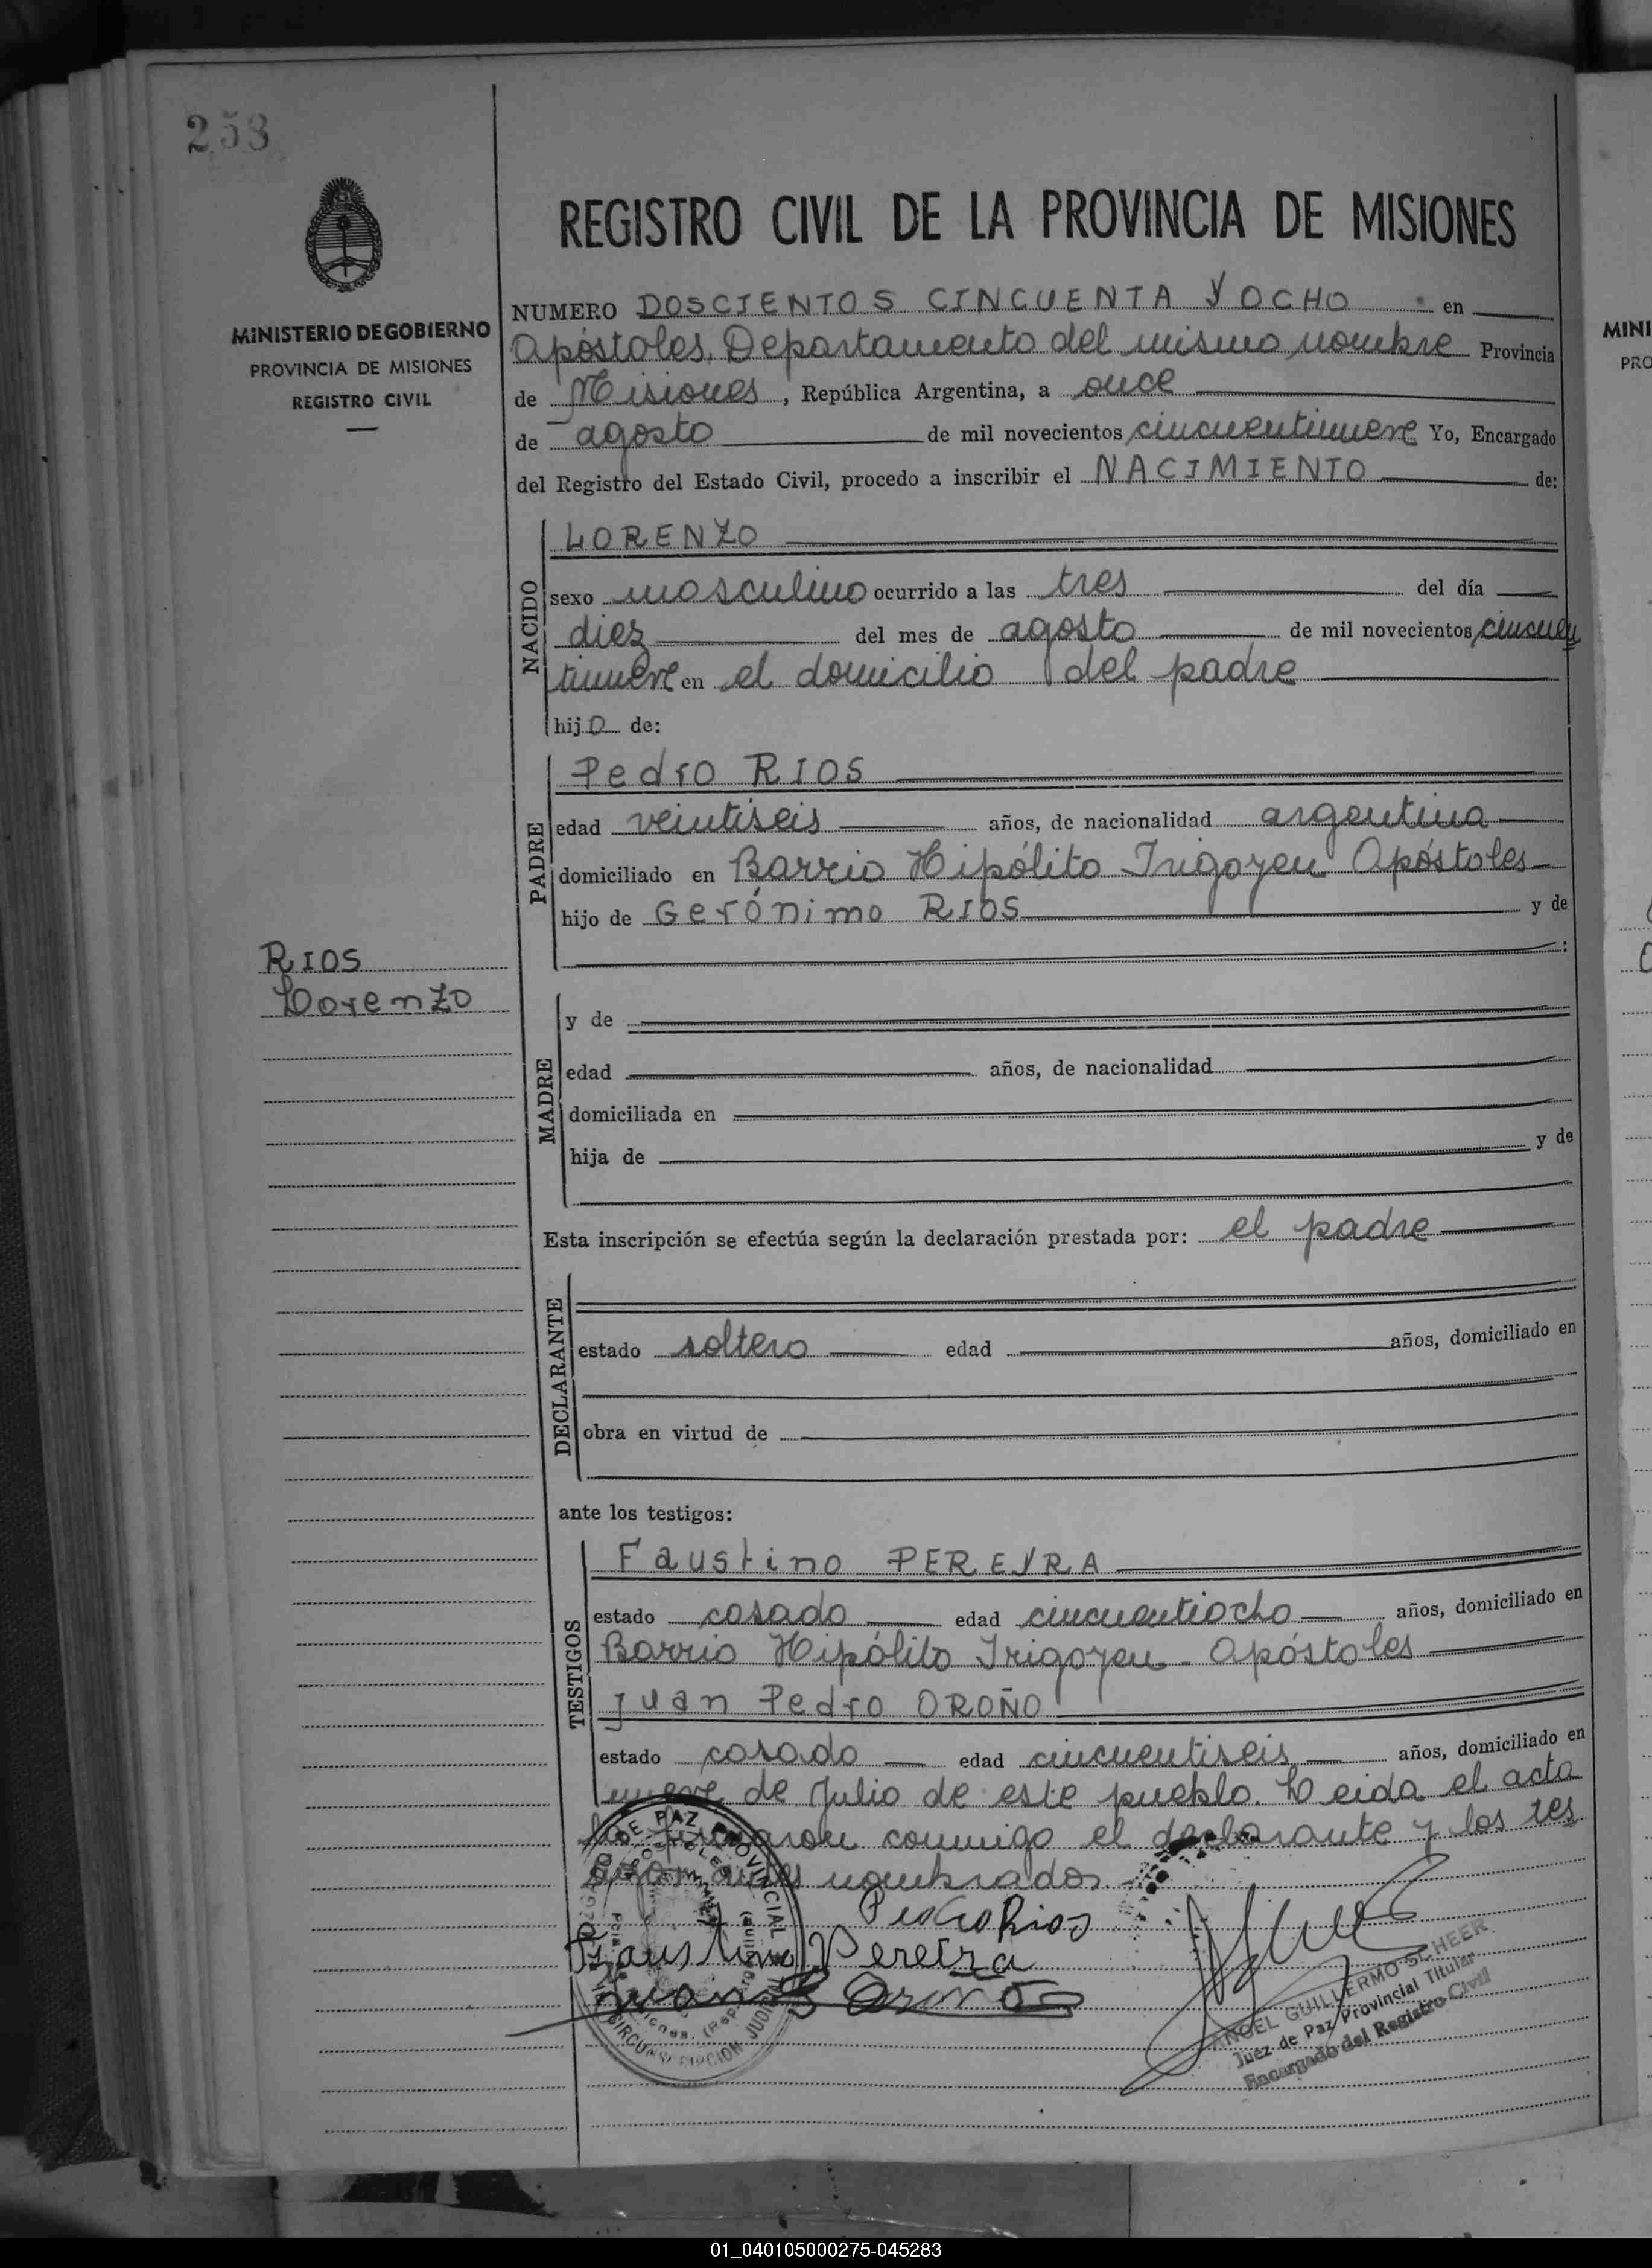 258
MINISTERIO DE GOBIERNO
PROVINCIA DE MISIONES
REGISTRO CIVIL
REGISTRO CIVIL DE LA PROVINCIA DE MISIONES
NUMERO DOSCIENTOS CINCUENTA Y OCHO en
Apóstoles, Departamento del mismo nombre Provincia
de Misiones, República Argentina, a once
de agosto de mil novecientos cincuentinueve Yo, Encargado
del Registro del Estado Civil, procedo a inscribir el NACIMIENTO de:
NACIDO
LORENZO
sexo masculino ocurrido a las tres del día
diez del mes de agosto de mil novecientos cincuen
tinueve en el domicilio del padre
hijo de:
PADRE
Pedro RIOS
edad veintiseis años, de nacionalidad argentina
domiciliado en Barrio Hipólito Irigoyen Apóstoles
hijo de Gerónimo RIOS y de
:
RIOS
Lorenzo
MADRE
y de
edad años, de nacionalidad
domiciliada en
hija de y de
Esta inscripción se efectúa según la declaración prestada por: el padre
DECLARANTE
estado soltero edad años, domiciliado en
obra en virtud de
ante los testigos:
TESTIGOS
Faustino PEREYRA
estado casado edad cincuentiocho años, domiciliado en
Barrio Hipólito Irigoyen - Apóstoles
Juan Pedro OROÑO
estado casado edad cincuentiseis años, domiciliado en
nueve de Julio de este pueblo. Leida el acta
la firmaron conmigo el declarante y los tes
tigos antes nombrados.
Pedro Rios
Faustino Pereira
Juan P Oroño
DE PAZ PROVINCIAL
CIRCUNSCRIPCION JUDICIAL
ANGEL GUILLERMO SCHEER
Juez de Paz Provincial Titular
Encargado del Registro Civil
MINI
PRO
01_040105000275-045283